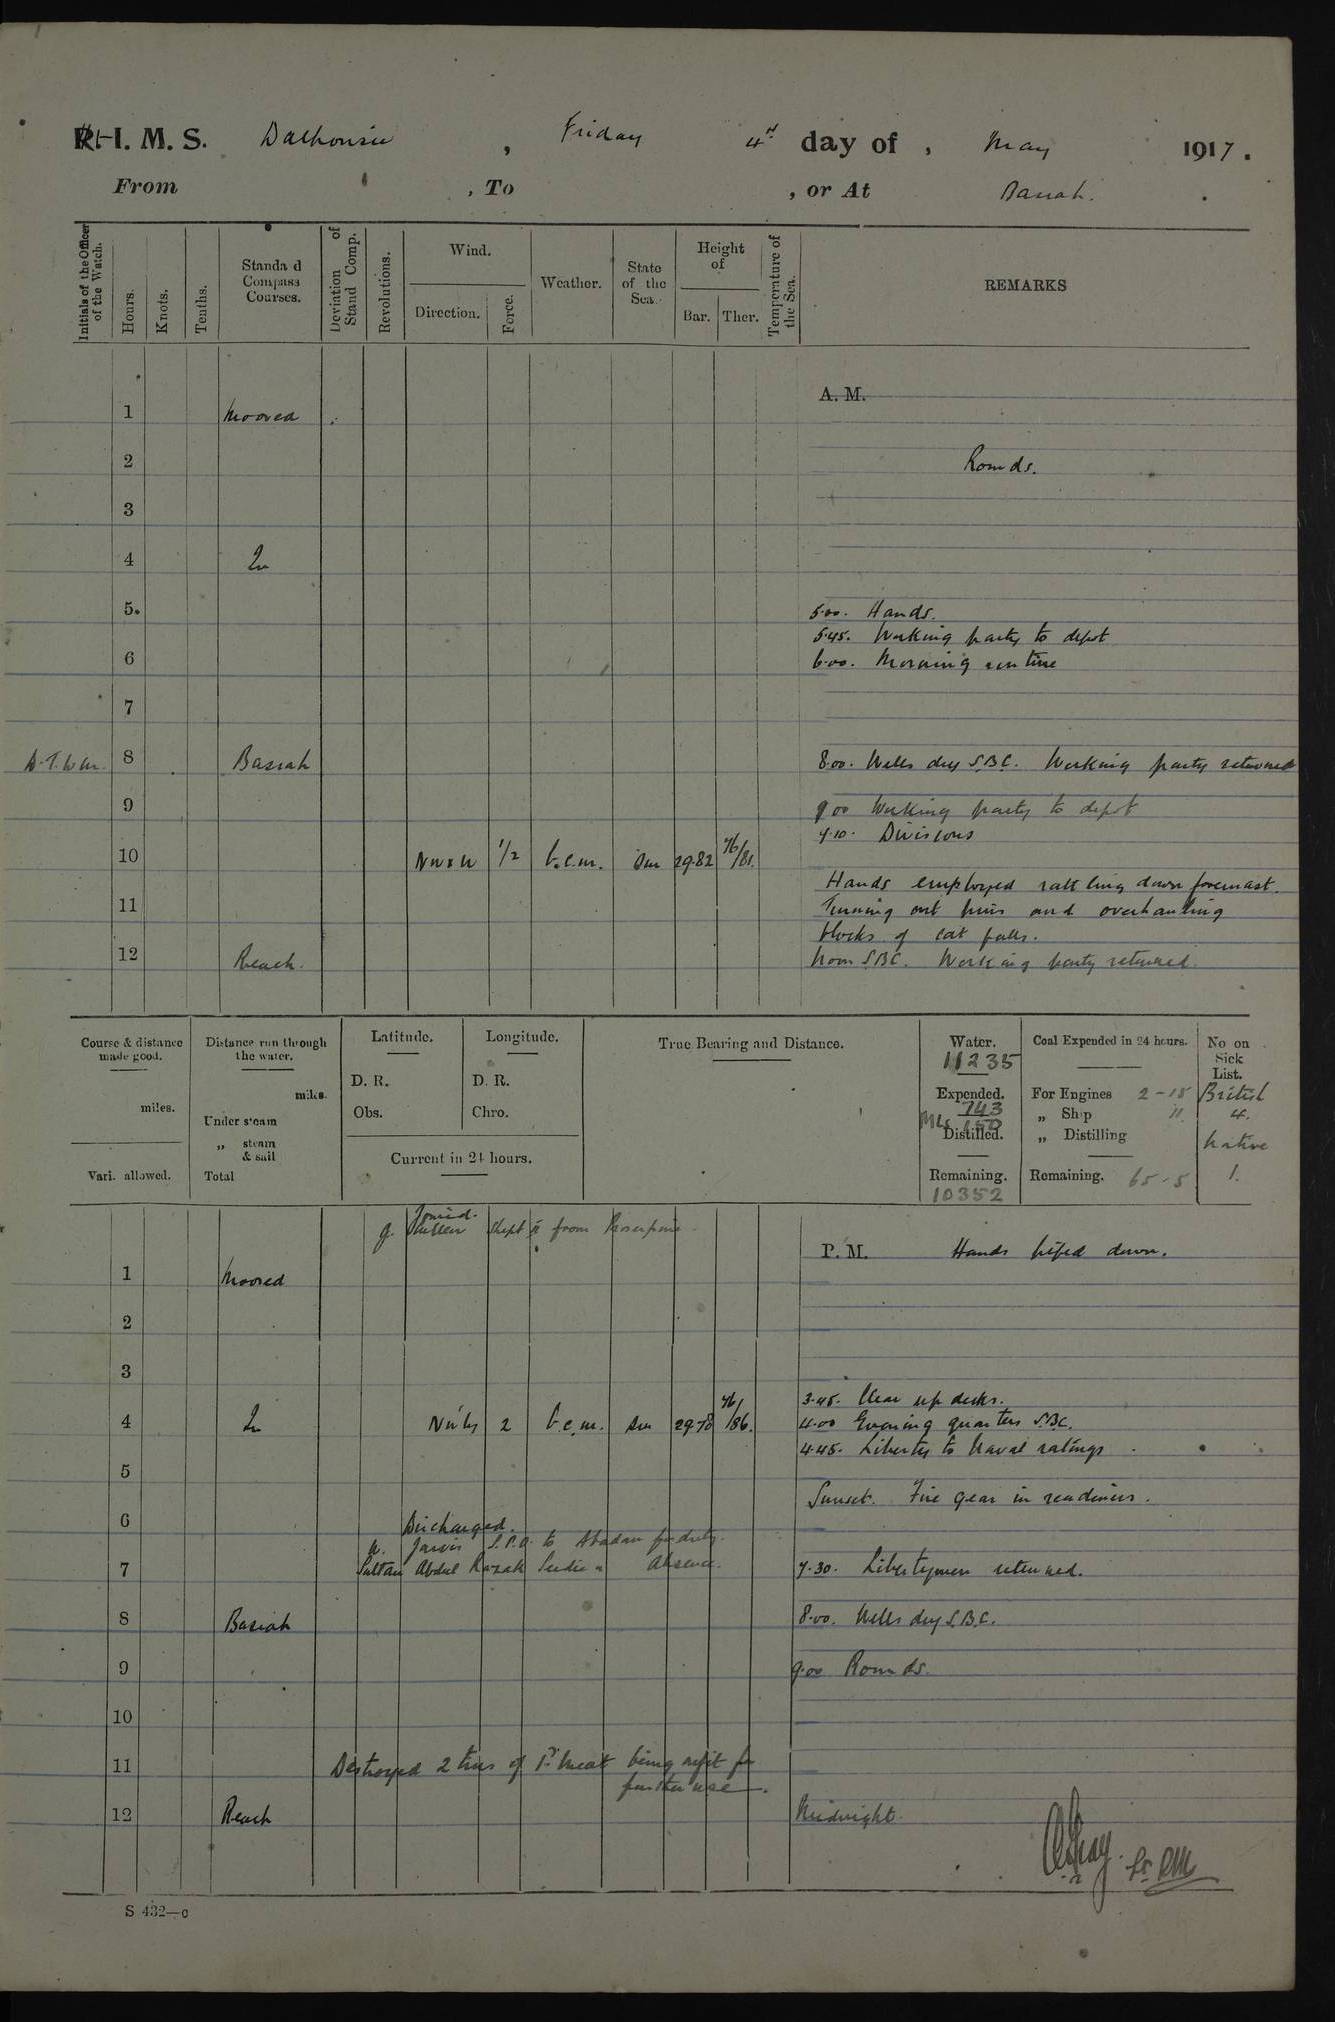 R. I. M. S. Dalhousie , Friday 4th day of , May 1917.
From , To , or At Basrah.
Initials of the Officer of the Watch.
Hours.
Knots.
Tenths.
Standa d Compass Courses.
Deviation of Stand Comp.
Revolutions.
Wind.
Direction.
Force.
Weather.
State of the Sea.
Height of
Bar. Ther.
Temperature of the Sea.
REMARKS
A. M.
1 Moored
2 Rounds.
3
4 In
5. 5.00. Hands.
5.45. Working party to depot
6 6.00. Morning routine
7
8 Basrah 8.00. Wells dry S.B.C. Working party returned
9 9.00 Working party to depot
9.10. Divisions
10 NWxW 1/2 b.c.m. Sm 29.82 76/81.
Hands employed rattling down foremast.
11 Turning out and overhauling
blocks of cat falls.
12 Reach. Noon S.B.C. Working party returned.
Course & distance made good.
miles.
Vari. allowed.
Distance run through the water.
miles.
Under steam
„ steam & sail
Total
Latitude.
D. R.
Obs.
Longitude.
D. R.
Chro.
Current in 24 hours.
True Bearing and Distance.
Water.
11235
Expended.
743
150
Distilled.
Remaining.
10352
Coal Expended in 24 hours.
For Engines 2-15
„ Ship 11
„ Distilling
Remaining. 65-5
No on Sick List.
British
4.
Native
1.
Joined.
from Proserpine
P. M. Hands piped down.
1 Moored
2
3
3.45. Clear up decks.
4 In NW'ly 2 b.c.m. Sm 29.78 76/86. 4.00 Evening quarters S.B.C.
4.45. Liberty to Naval ratings
5
Sunset. Fire gear in readiness.
6 Discharged.
Jarvis to Abadan for duty.
7 Sultan Abdul Razak Absence. 7.30. Libertymen returned.
8 Basrah 8.00. Wells dry S.B.C.
9 9.00 Rounds.
10
11 Destroyed 2 tins of Pr. Meat being unfit for
further use.
12 Reach Midnight.
S 432—c